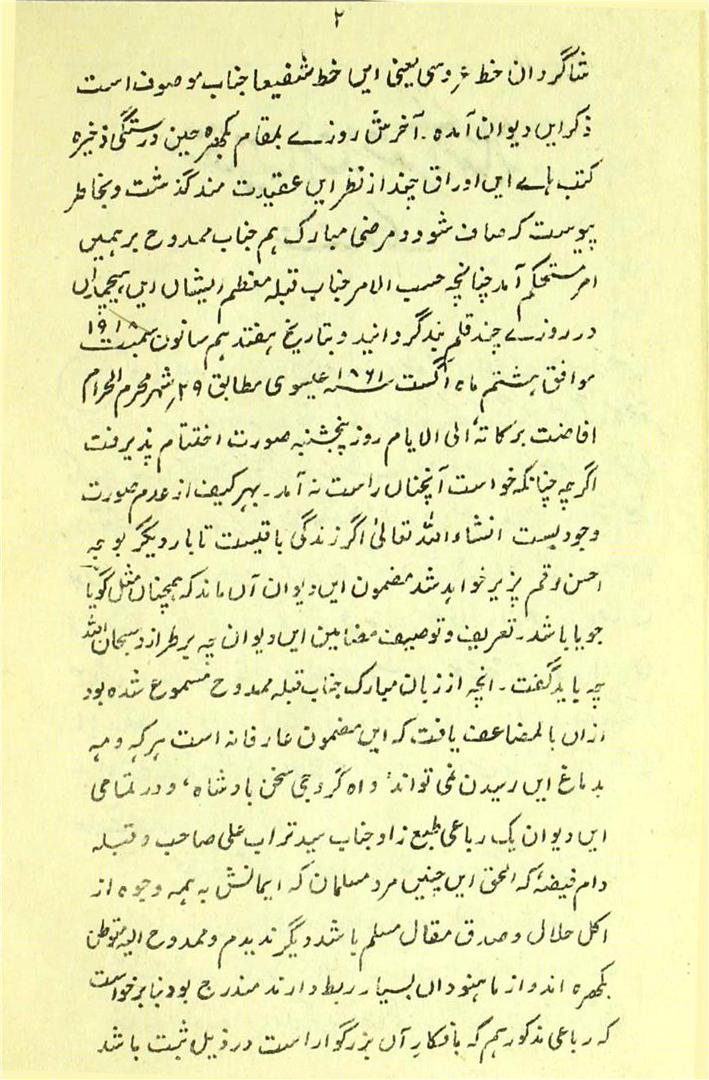 ۲
شاگردان خط عروسی یعنی ایں خط شفیعا جناب موصوف است
ذکر ایں دیوان آمدہ۔ آخرش روزے بمقام بکھرہ حین درستگی ذخیرہ
کتب ہاے ایں اوراق چند از نظر ایں عقیدت مند گذشت و بخاطر
پیوست کہ صاف شود و مرضی مبارک ہم جناب ممدوح بر ہمیں
امر مستحکم آمد چنانچہ حسب الامر جناب قبلہ معظم الیشاں ایں ہیچمداں
در روزے چند قلم بند گردانید و بتاریخ ہفتدہم سانون سمبت ۱۹۱۸
موافق ہشتم ماہ اگست ۱۸۶۱ سنہ عیسوی مطابق ۲۹ر شہر محرم الحرام
افاضت برکاتہٗ الی الایام روز پنجشنبہ صورت اختتام پذیرفت
اگرچہ چنانکہ خواست آنچناں راست نہ آمد۔ بہر کیف از عدم صورت
وجود بست انشاء اللہ تعالیٰ اگر زندگی باقیست تا بار دیگر بوجہ
احسن رقم پزیر خواہد شد مضمون ایں دیوان آں ماند کہ ہمچناں مثل گویا
جویا باشد۔ تعریف و توصیف مضامین ایں دیوان چہ بر طرازد سبحان اللہ
چہ باید گفت۔ انچہ از زبان مبارک جناب قبلہ ممدوح مسموع شدہ بود
ازاں بالمضاعف یافت کہ ایں مضمون عارفانہ است ہر کہ و مہ
بدماغ ایں رسیدن نمی تواند، واہ گروجی سخن بادشاہ، و در تمامی
ایں دیوان یک رباعی طبع زاد جناب سید تراب علی صاحب و قبلہ
دام فیضہٗ کہ الحق ایں چنیں مرد مسلمان کہ ایمانش بہ ہمہ وجوہ از
اکل حلال و صدق مقال مسلم باشد دیگر ندیدم و ممدوح الیہ متوطن
بکھرہ اند و از ما ہنوداں بسیار ربط دارند مندرج بود بنا بر خواست
کہ رباعی مذکور ہم کہ بافکار آں بزرگوار است در ذیل ثبت باشد